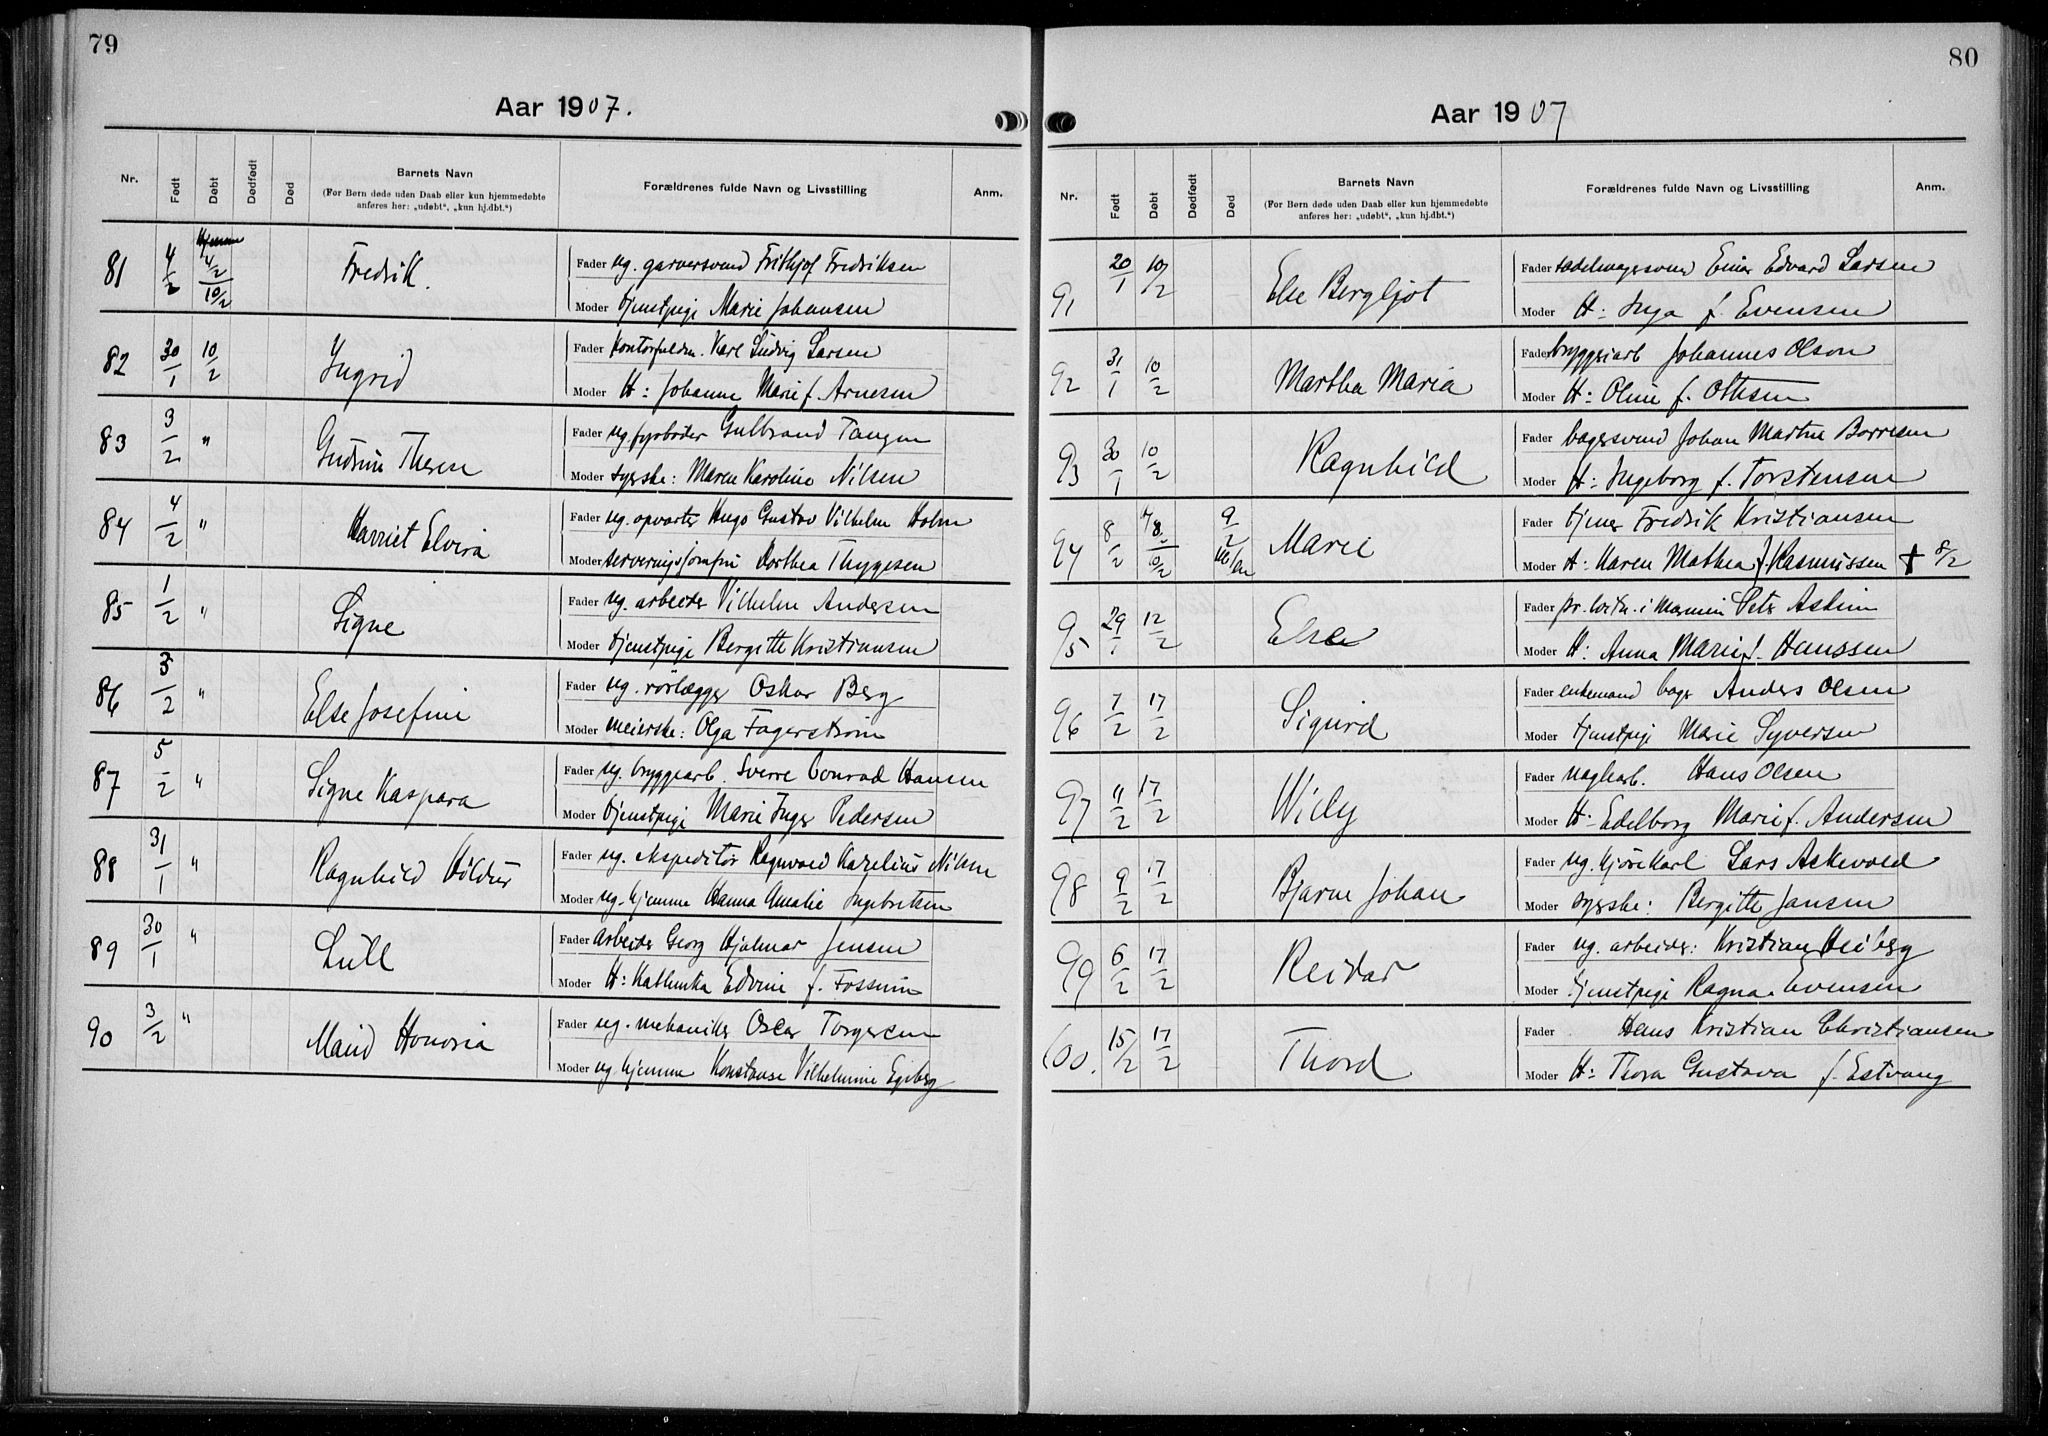 79
Aar 1907.
Nr. Født Døbt Dødfødt Død Barnets Navn Forældrenes fulde Navn og Livsstilling Anm.
(For Børn døde uden Daab eller kun hjemmedøbte
anføres her: „udøbt“, „kun hj.dbt.“)
81 4/2 Hjemme 4/2 10/2 Fredrik. Fader ug. garversvend Frithjof Fredriksen
Moder tjenstpige Marie Johansen
82 30/1 10/2 Ingrid Fader Kontorfuldm. Karl Ludvig Larsen
Moder H: Johanne Marie f. Arnesen
83 3/2 " Gudrun Therese Fader ug. fyrbøder Gulbrand Tangen
Moder syerske: Maren Karoline Nilsen
84 4/2 " Harriet Elvira Fader ug. opvarter Hugo Gustav Vilhelm Holm
Moder serveringsjomfru Dorthea Thygesen
85 1/2 " Signe Fader ug. arbeider Vilhelm Andersen
Moder tjenstpige Bergitte Kristiansen
86 3/2 " Else Josefine Fader ug. rørlægger Oskar Berg
Moder meierske: Olga Fagerstrøm
87 5/2 " Signe Kaspara Fader ug. bryggearb. Sverre Conrad Hansen
Moder tjenstpige Marie Inger Pedersen
88 31/1 " Ragnhild Hildur Fader ug. ekspeditør Ragnvald Karelius Nilsen
Moder ug. hjemme Hanna Amalie Ingebretsen
89 30/1 " Lull Fader Arbeider Georg Hjalmar Jensen
Moder H: Kathinka Edvine f. Fossum
90 3/2 " Maud Honoria Fader ug. mekaniker Oscar Torgersen
Moder ug hjemme Konstanse Vilhelmine Egeberg
80
Aar 1907
Nr. Født Døbt Dødfødt Død Barnets Navn Forældrenes fulde Navn og Livsstilling Anm.
(For Børn døde uden Daab eller kun hjemmedøbte
anføres her: „udøbt“, „kun hj.dbt.“)
91 20/1 10/2 Else Bergljot Fader sadelmagersvend Einar Edvard Larsen
Moder H: Inga f. Evensen
92 31/1 10/2 Martha Maria Fader bryggeriarb Johannes Olson
Moder H: Oline f. Ottesen
93 30/1 10/2 Ragnhild Fader bagersvend Johan Martin Borresen
Moder H: Ingeborg f. Torstensen
94 8/2 10/2 9/2 Marie Fader tjener Fredrik Kristiansen
Moder H: Karen Mathea f. Rasmussen + 8/2
95 29/1 12/2 Else Fader pr. løitn. i Marinen Peter Askim
Moder H: Anna Marie f. Hanssen
96 7/2 17/2 Sigurd Fader enkemand bager Anders Olsen
Moder tjenstpige Marie Syversen
97 11/2 17/2 Willy Fader naglearb. Hans Olsen
Moder H: Edelborg Marie f. Andersen
98 9/2 17/2 Bjarne Johan Fader ug. kjørekarl Lars Askevold
Moder syerske: Bergitte Jansen
99 6/2 17/2 Reidar Fader ug. arbeider: Kristian Heiberg
Moder tjenstpige Ragna Evensen
100. 15/2 17/2 Thord Fader Hans Kristian Christiansen
Moder H: Thora Gustava f. Estvang